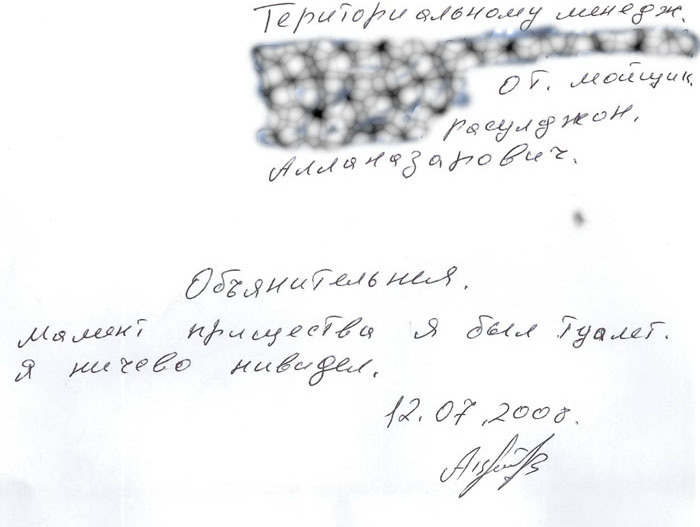 Териториальному менедж.
от. мойщик
расулджон.
Алланазарович.
Обьянительния.
Мамент прищества я был Туалет.
я ничево нивидел.
12.07.2008.